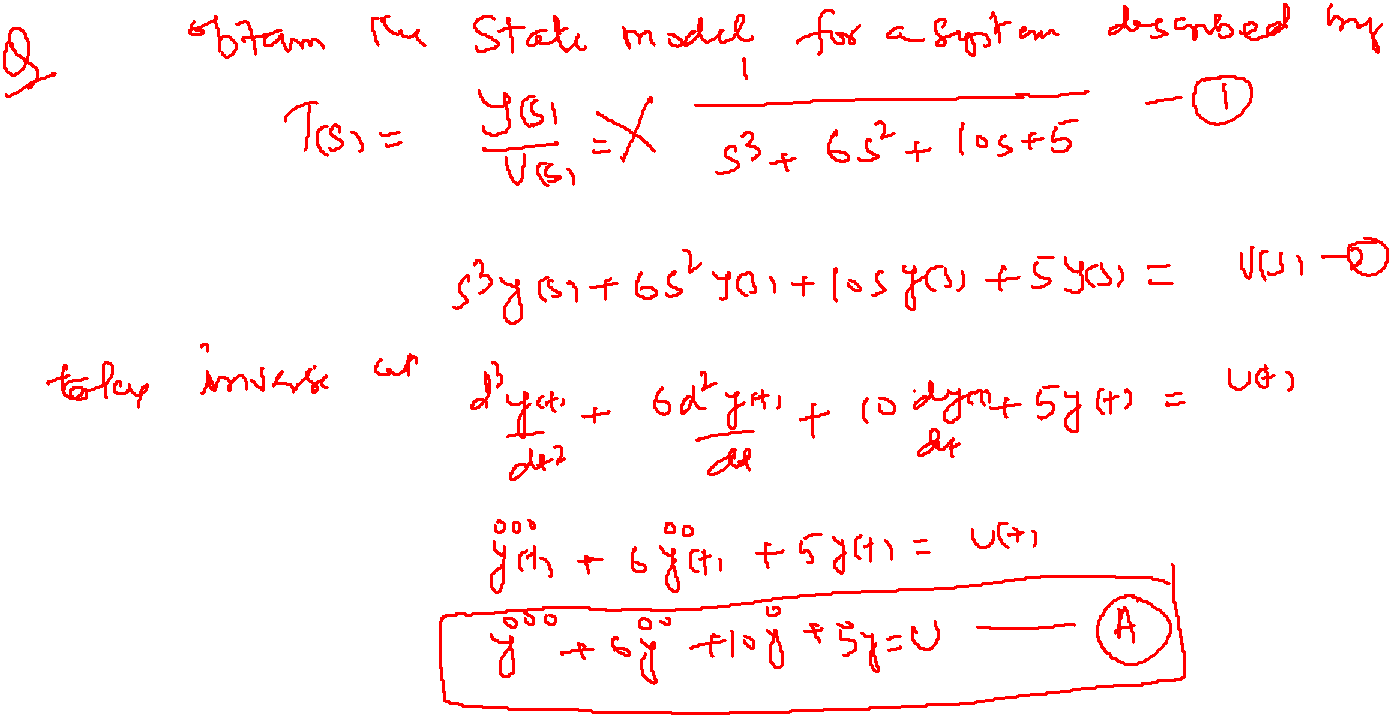 Q obtain the state model for a system described by
T(s) = Y(s) / U(s) = 1 / s³ + 6s² + 10s + 5 — ①
s³y(s) + 6s² y(s) + 10s y(s) + 5y(s) = U(s) — ②
take inverse LT d³y(t)/dt² + 6d²y(t)/dt + 10 dy(t)/dt + 5y(t) = U(t)
y⃛(t) + 6ÿ(t) + 5y(t) = U(t)
y⃛ + 6ÿ + 10ẏ + 5y = U — Ⓐ